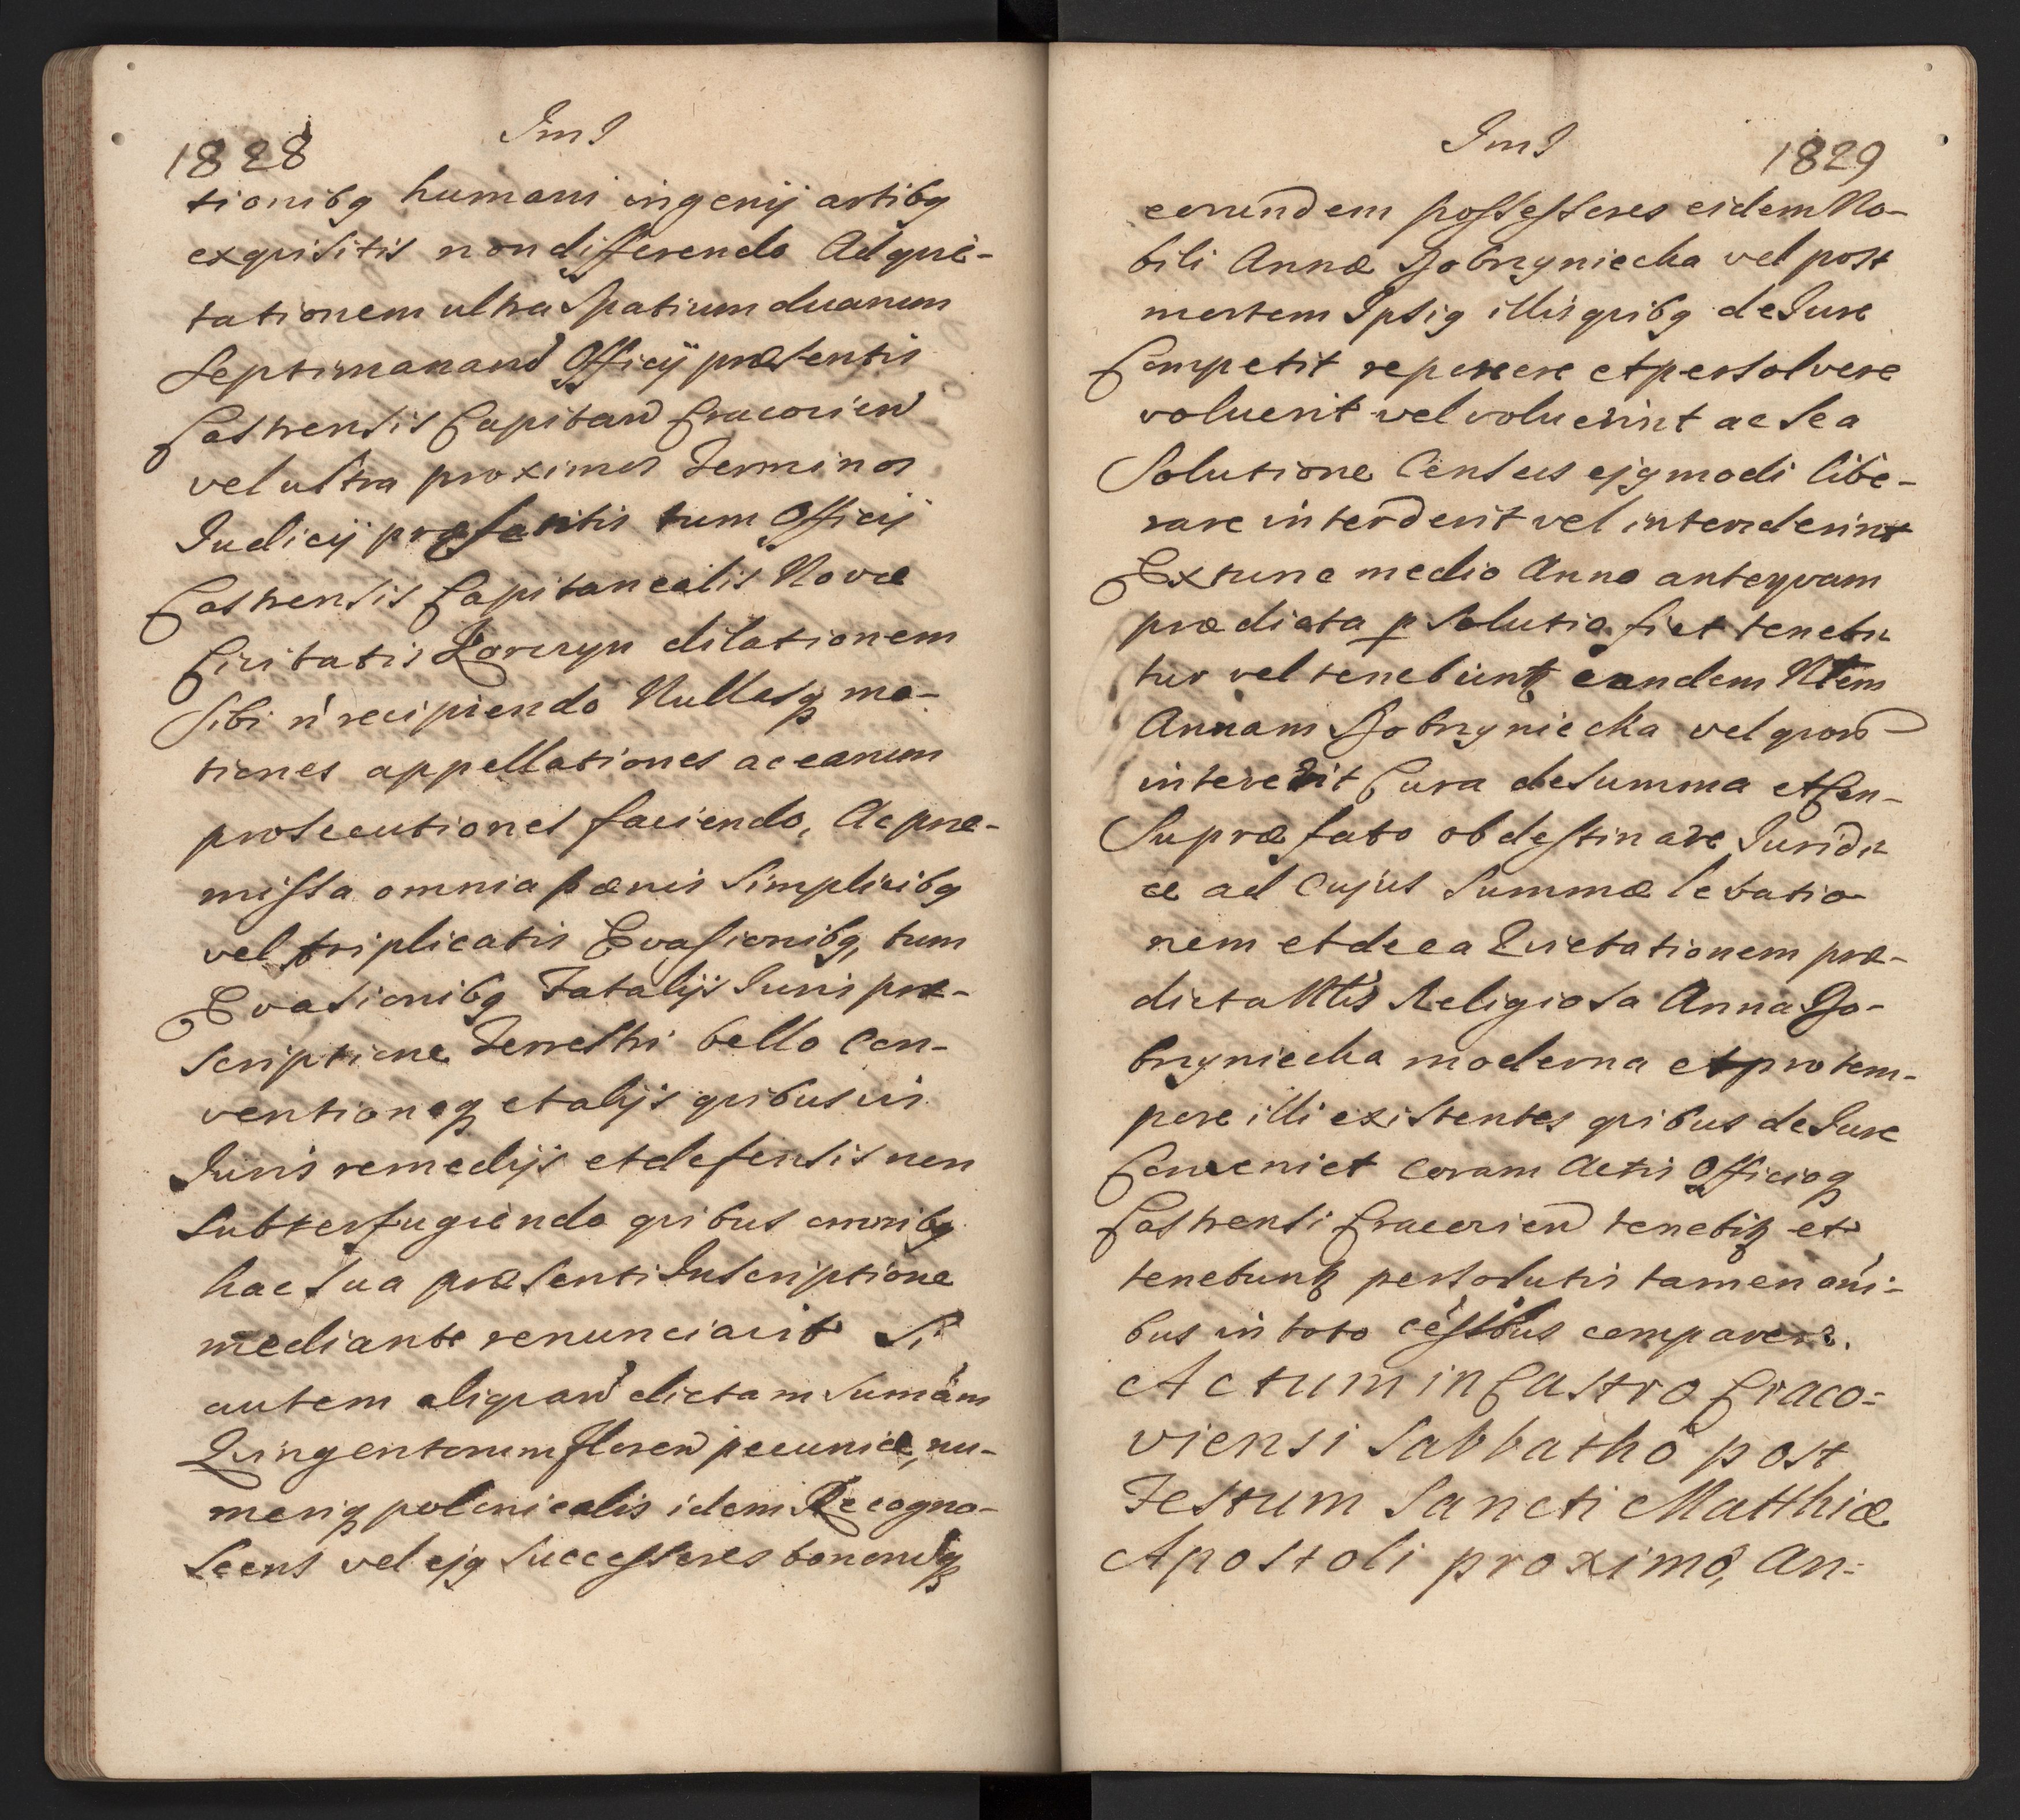 1828
ImI
tionibq humani ingenij artibq
exquisitis non differendo Ad quie-
tationem ultra Spatium duarum
Septimanarũ Officij præsentis
Castrensis Capitan̄ Cracovien̄
vel ultra proximos Terminos
Iudicij præsentis tum Officij
Castrensis Capitanealis Novæ
Civitatis Korczyn dilationem
Sibi ń recipiendo Nullasq mo-
tiones appellationes ac earum
prosecutiones faciendo, Ac præ-
missa omnia pænis Simplicibq
vel triplicatis Evasionibq, tum
Evasionibq Fatalijs Iuris præ-
scriptione Terrestri bello Con-
ventioneq et alijs quibusvis
Iuris remedijs et defensis non
Subterfugiendo quibus omnibq
hac Sua præsenti Inscriptione
mediante renunciavit Si
autem aliquan̄ dictam Sumam̄
Quingentorum Floren̄ pecuniæ, nu-
meriq polonicalis idem Recogno-
scens vel ejq Successores bonorũq
ImI
1829
eorundem possessores eidem No-
bili Annæ Dobrzyniecka vel post
mortem Ipsiq illis quibq de Iure
Competit reponere et persolvere
voluerit vel voluerint ac Se a
Solutione Census ejqmodi libe-
rare intenderit vel intenderint
Extunc medio Anno antequam
prædicta p solutio fiet tenebi
tur vel tenebunt eandem Nlem
Annam Dobrzyniecka vel quorũ
intererit Cura de Summa et Cen-
Su præfato obdestinare Iuridi
ce ad Cujus Summæ levatio
nem et de ea Quietationem præ-
dicta Nlis Religiosa Anna Do-
brzyniecka moderna et pro tem-
pore illi existentes quibus de Iure
Conveniet Coram Actis Officioq
Castrensi Cracovien̄ tenebit et
tenebunt persolutis tamen om̄i-
bus in toto cēsibus comparere.
Actum in Castro Craco-
viensi Sabbatho post
Festum Sancti Matthiæ
Apostoli proximo, An-